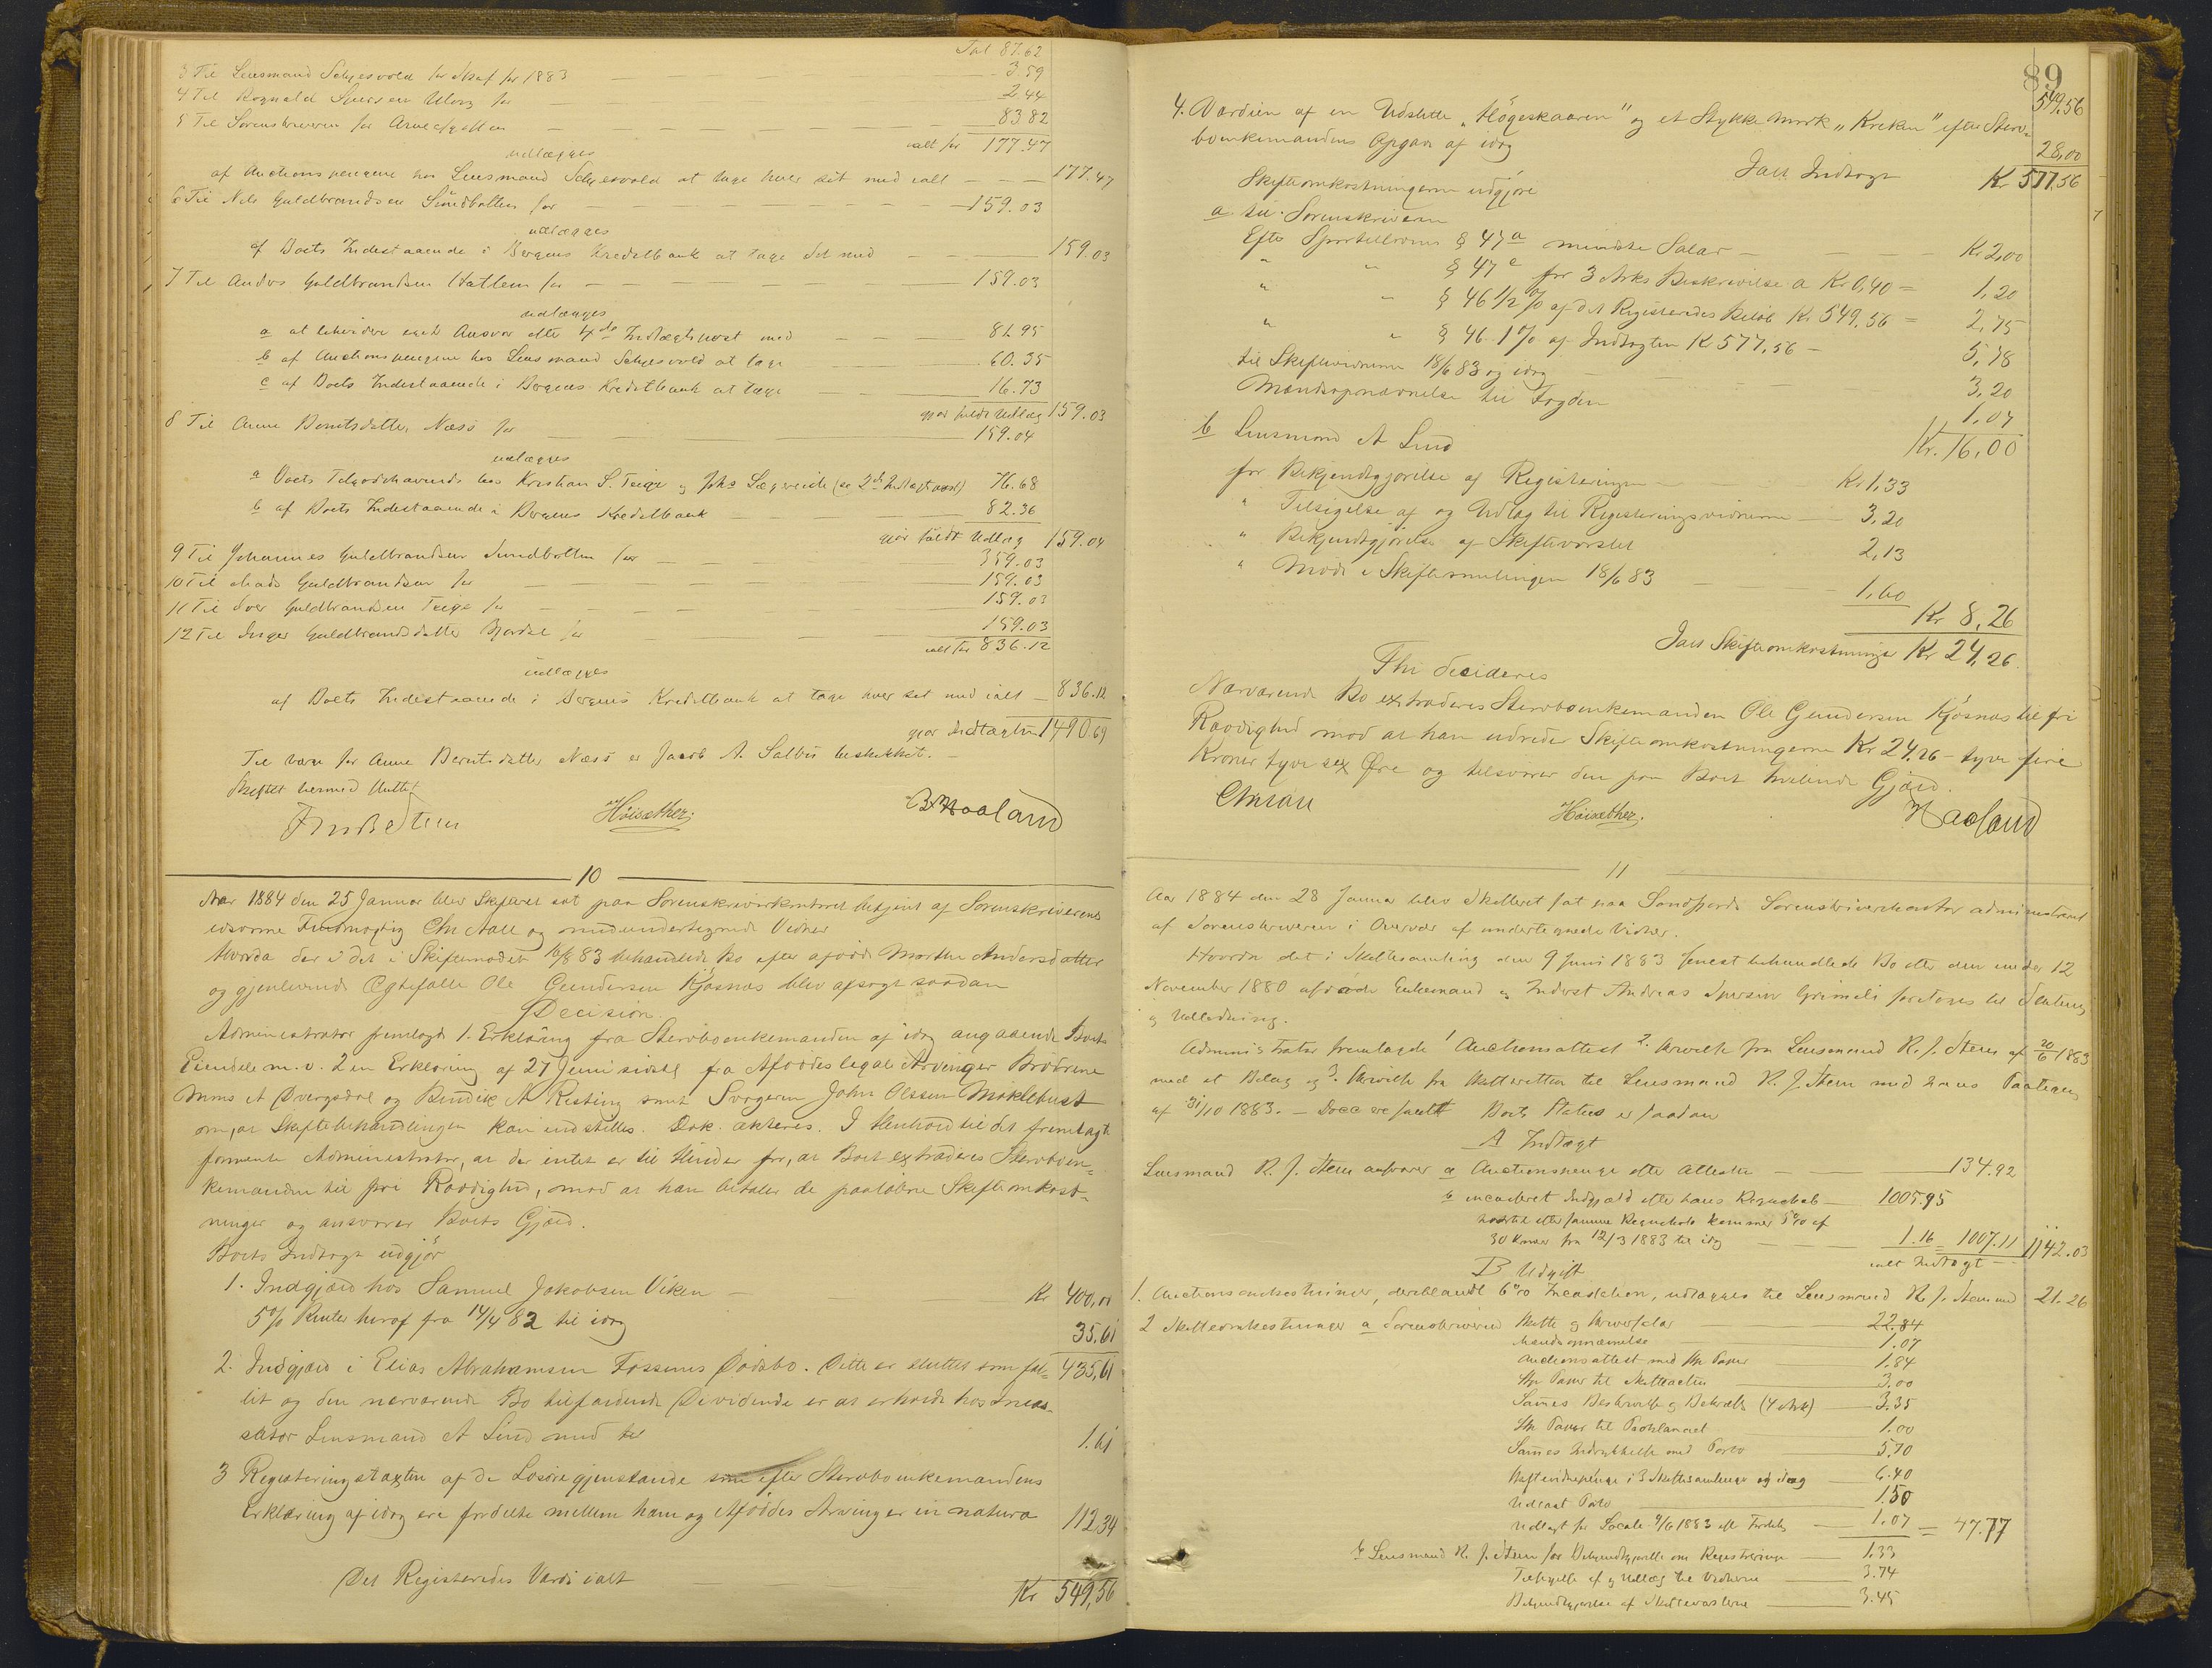 Ialt 87.62
3 Til Lensmand Schjesvold for Skat for 1883 — 3.59
4 Til Rognald Iversen for — 2.44
5 Til Sorenskriveren for Arveafgiften — 83.82
ialt for 177.47
udlægges
af Auctionspengene hos Lensmand Schjesvold at tage hver sit med ialt — 177.47
6 Til Nils Guldbrandsen Sundbotten for — 159.03
udlægges
af Boets Indestaaende i Bergens Kreditbank at tage det med — 159.03
7 Til Anders Guldbrandsen Hatlem for — 159.03
udlægges
a at beholde eget Ansvar efter 4de Indtægtspost med — 81.95
b af Auctionspengene hos Lensmand Schjesvold at tage — 60.35
c af Boets Indestaaende i Bergens Kreditbank at tage — 16.73
gjør fuldt Udlæg 159.03
8 Til Anne Berntsdatter Næss for — 159.04
udlægges
a Boets Tilgodehavende hos Kristian S. Teige og Johs (se 2den Indtægtspost) 76.68
b af Boets Indestaaende i Bergens Kreditbank — 82.36
gjør fuldt Udlæg 159.04
9 Til Johannes Guldbrandsen Sundbotten for — 359.03
10 Til Mads Guldbrandsen for — 159.03
11 Til Iver Guldbrandsen Teige for — 159.03
12 Til Inger Guldbrandsdatter for — 159.03
ialt for 836.12
udlægges
af Boets Indestaaende i Bergens Kreditbank at tage hver sit med ialt — 836.12
gjør Indtægten 1490.69
Til Værge for Anne Berntsdatter Næss er Jacob A. Solbø beskikket. —
Skiftet hermed sluttet
Høisæther. Haaland
10
Aar 1884 den 25 Januar blev Skifteret sat paa Sorenskriverkontoret betjent af Sorenskriverens
edsvorne Fuldmægtig Chr Aall og medundertegnede Vidner
Hvorda der i det i Skiftemødet 18/6 83 behandlede Bo efter afdøde Marthe Andersdatter
og gjenlevende Egtefælle Ole Gundersen Kjøsnæs blev afsagt saadan
Decision.
Administrator fremlagde 1. Erklæring fra Stervboenkemanden af idag angaaende Boets
Eiendele m. v. 2 en Erklæring af 27 Juni sidstl fra Afdødes legale Arvinger Brødrene
Mons A Øvergsdal og Bendik A Resting samt Svogeren John Olssen Møklebust
om, at Skiftebehandlingen kan indstilles. Dok. akteres. I Henhold til det fremlagte
formente Administrator, at der intet er til Hinder for, at Boet extraderes Stervboen-
kemanden til fri Raadighed, mod at han betaler de paaløbne Skifteomkost-
ninger og ansvarer Boets Gjæld.
Boets Indtægt udgjør
1. Indgjæld hos Samuel Jakobsen Viken — Kr 400,00
5% Renter heraf fra 14/4 82 til idag 35,61
2. Indgjæld i Elias Abrahamsen Fossenes Dødsbo. Dette er sluttet som fal- 435,61
lit og den nærværende Bo tilfaldende Dividende er at erholde hos Incas-
sator Lensmand A Lind med til 1.61
3 Registeringstaxten af de Løsøregjenstande som efter Stervboenkemandens
Erklæring af idag ere fordelte mellem ham og Afdødes Arvinger in natura 112.34
Det Registeredes Værdi ialt — Kr 549,56
89
549,56
4. Værdien af en Udslette „Høgeskaaren" og et Stykke Mark „Kreken" efter Sterv-
boenkemandens Opgave af idag 28,00
Ialt Indtægt Kr 577,56
Skifteomkostningerne udgjøre
a til Sorenskriveren
Efter Sportelloven § 47 a mindste Salær — Kr 2,00
" " § 47 c for 3 Arks Beskrivelse a Kr 0,40 = 1,20
" " § 46 1/2 % af det Registeredes Beløb Kr 549,56 = 2,75
" " § 46 1 % af Indtægten K 577,56 — 5,78
til Skiftevidnerne 18/6 83 og idag — 3,20
Mændsopnævnelse til Fogden 1,07
Kr. 16,00
b Lensmand A Lind
for Bekjendtgjørelse af Registeringen — Kr 1,33
" Tilsigelse af og Udlæg til Registeringsvidnerne — 3,20
" Bekjendtgjørelse af Skiftevarslet 2,13
" Møde i Skiftesamlingen 18/6 83 — 1,60
Kr 8,26
Ialt Skifteomkostninger Kr 24,26
Thi decideres
Nærværende Bo extraderes Stervboenkemanden Ole Gundersen Kjøsnæs til fri
Raadighed mod at han udreder Skifteomkostningerne Kr 24,26 – tyve fire
Kroner tyve sex Øre og tilsvarer den paa Boet hvilende Gjæld.
Chr Aall Høisæther. Haaland
11
Aar 1884 den 28 Januar blev Skifteret sat paa Søndfjords Sorenskriverkontor administreret
af Sorenskriveren i Overvær af undertegnede Vidner.
Hvorda det i Skiftesamling den 9 Juni 1883 senest behandlede Bo efter den under 12
November 1880 afdøde Enkemand og Inderst Andreas Iversen Grimeli foretoges til Slutning
og Udlodning.
Administrator fremlagde 1 Auctionsattest 2. Skrivelse fra Lensmand R. J. Stenn af 20/6 1883
med et Bilag og 3. Skrivelse fra Skifteretten til Lensmand R. J. Stenn med hans Paategn
af 31/10 1883. — Boets Status er saadan
A Indtægt
Lensmand R. J. Stenn ansvarer a Auctionspenge efter Attesten — 134.92
b incasseret Indgjæld efter hans Regnskab — 1005.95
hvortil efter samme Regnskab kommer 5% af
30 Kroner fra 12/3 1883 til idag — 1.16 = 1007.11 1142.03
ialt Indtægt —
B Udgift
1. Auctionsomkostninger, deriblandt 6% Incassation, udlægges til Lensmand R. J. Stenn med 21.26
2 Skifteomkostninger a Sorenskriveren Skifte og — 22.84
Mændsopnævnelse — 1.07
Auctionsattest med Stp Papir 1.84
Stp Papir til Skifteacten — 3.00
Sammes Beskrivelse og Bekræft (4 Ark) — 3.35
Stp Papir til Proklamaet — 1.00
Sammes Indrykkelse med Porto — 5.70
Skiftevidnepenge i 3 Skiftesamlinger og idag — 6.40
Udlagt Porto — 1.50
Udlagt for Locale 9/6 1883 — 1.07 = 47.77
b Lensmand R. J. Stenn for Bekjendtgjørelse om Registrering — 1.33
Tilsigelse af og Udlæg til Vidnerne — 3.74
Bekjendtgjørelse af Skiftevarslerne — 3.45